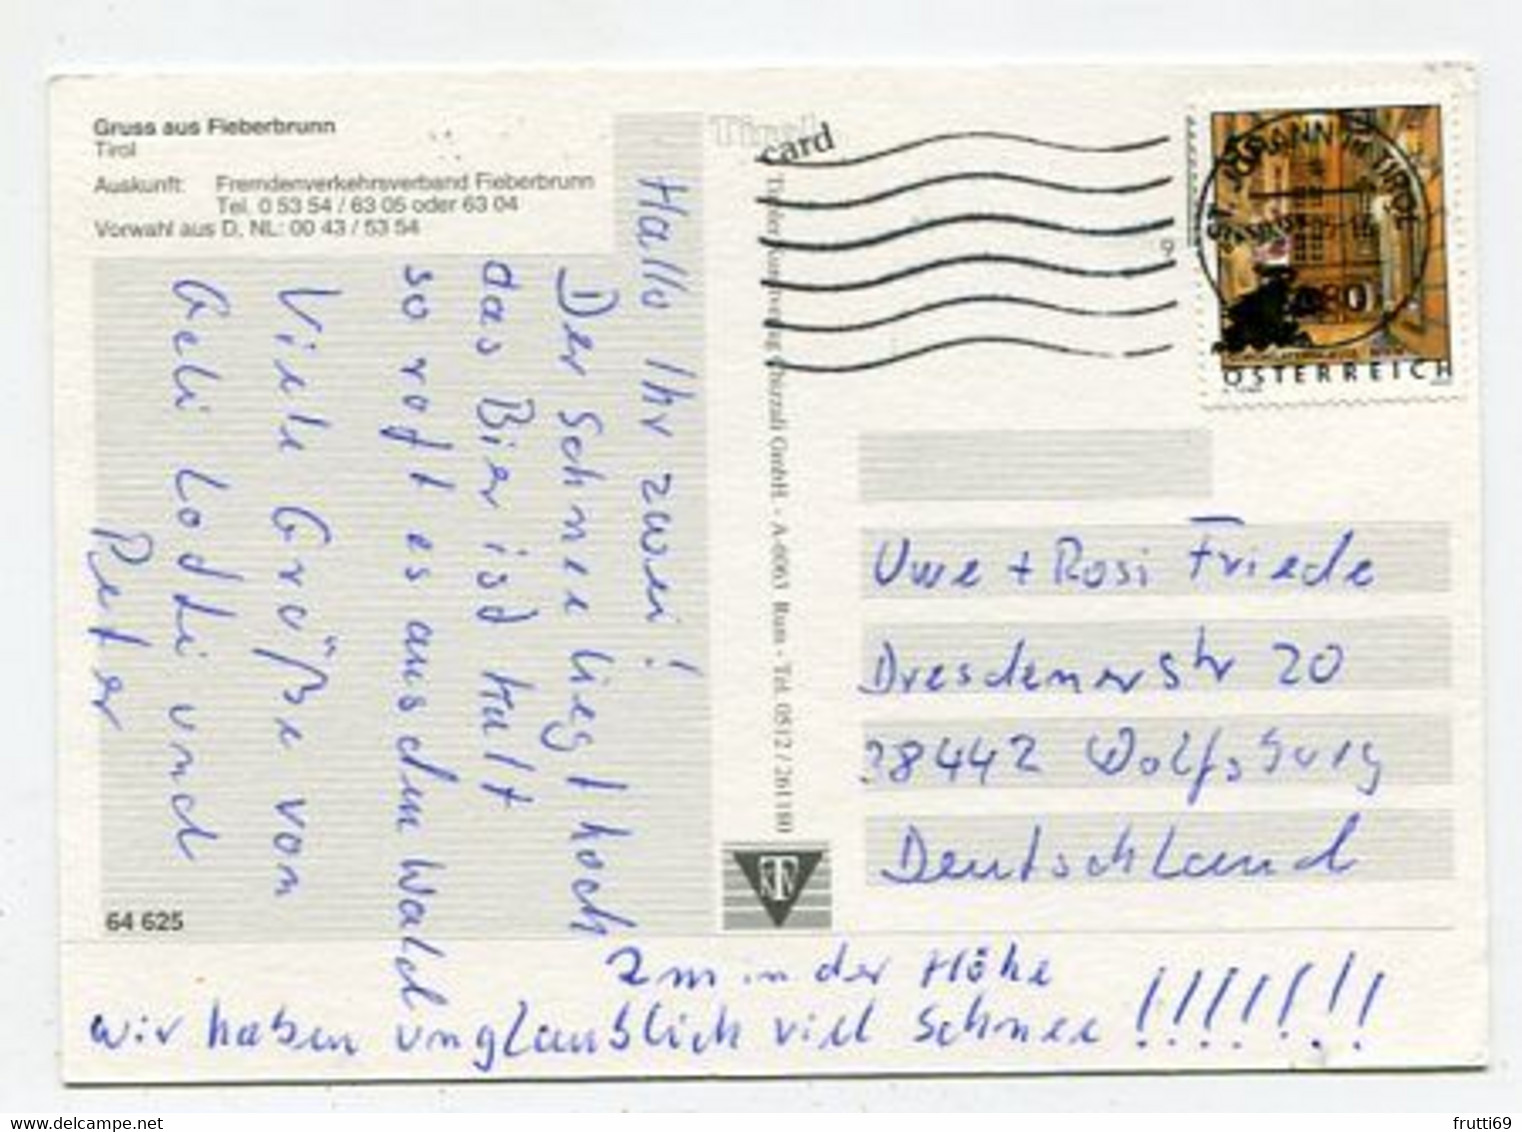 Gruss aus Fieberbrunn
Tirol
Auskunft: Fremdenverkehrsverband Fieberbrunn
Tel. 0 53 54 / 63 05 oder 63 04
Vorwahl aus D, NL: 00 43 / 53 54
Hallo Ihr zwei!
Der Schnee liegt hoch
das Bier ist kalt
so ruft es aus dem Wald
Viele Grüße von
Geli Lodti und
Peter
64 625
2m in der Höhe
wir haben unglaublich viel Schnee !!!!!!!
Tirol
card
GmbH. - A-6063 Rum - Tel. 0512 / 261180
ST. JOHANN in TIROL
ÖSTERREICH
Uwe + Rosi Friede
Dresdenerstr 20
38442 Wolfsburg
Deutschland
frutti69
delcampe.net